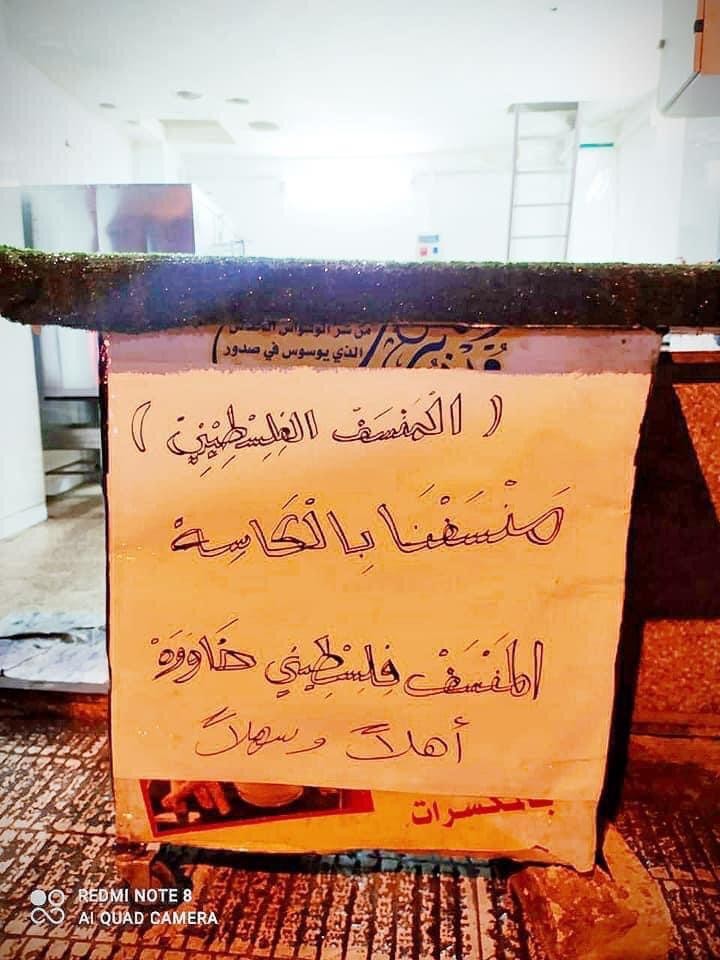 من شر الوسواس الخناس
الذي يوسوس في صدور
( الْمَنسَفْ الفِلِسْطِيْنِيّ )
مَنْسَفْنَا بِالْكَاسِهْ
المَنْسَفْ فِلِسْطِيني خَاوَوَهْ
أهلاً وسهلاً
بالكسرات
REDMI NOTE 8
AI QUAD CAMERA